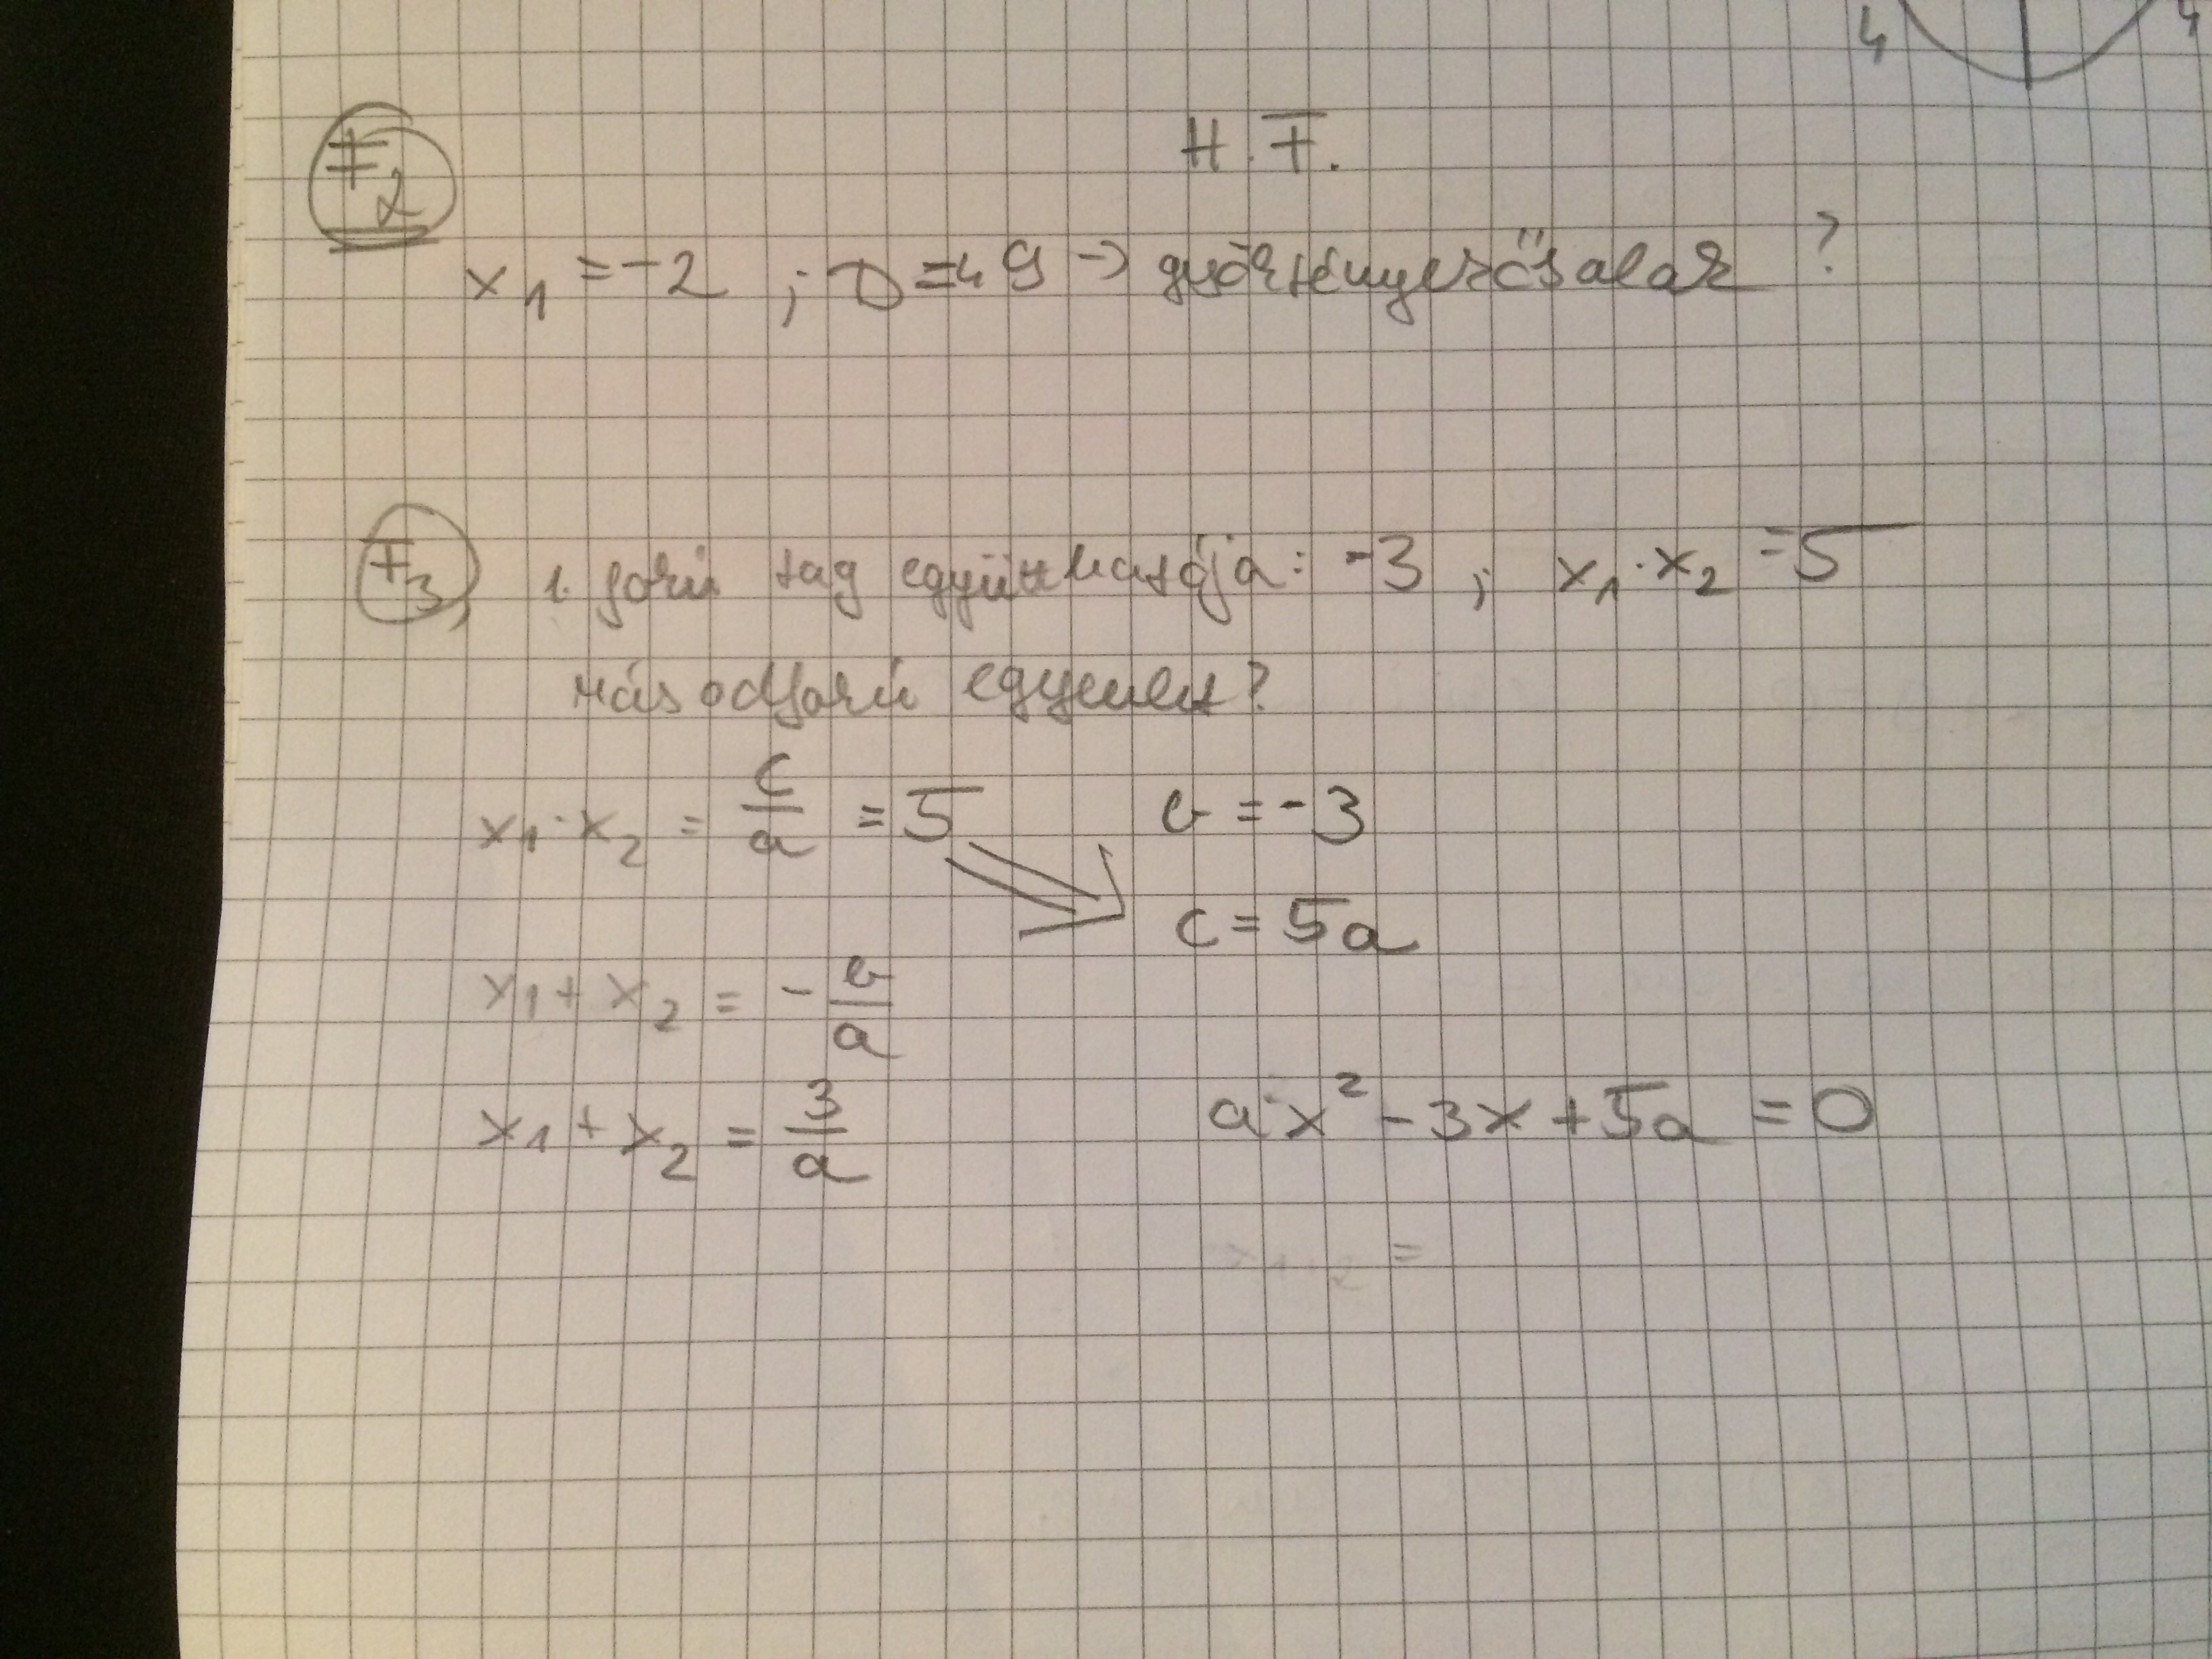 4 4
F2
H.F.
x1 = -2 ; D = 49 -> gyöktényezős alak ?
F3, 1. fokú tag együtthatója: -3 ; x1 · x2 = 5
másodfokú egyenlet?
x1 · x2 = c/a = 5 b = -3
c = 5a
x1 + x2 = - b/a
x1 + x2 = 3/a a·x² - 3x + 5a = 0
x1,2 =